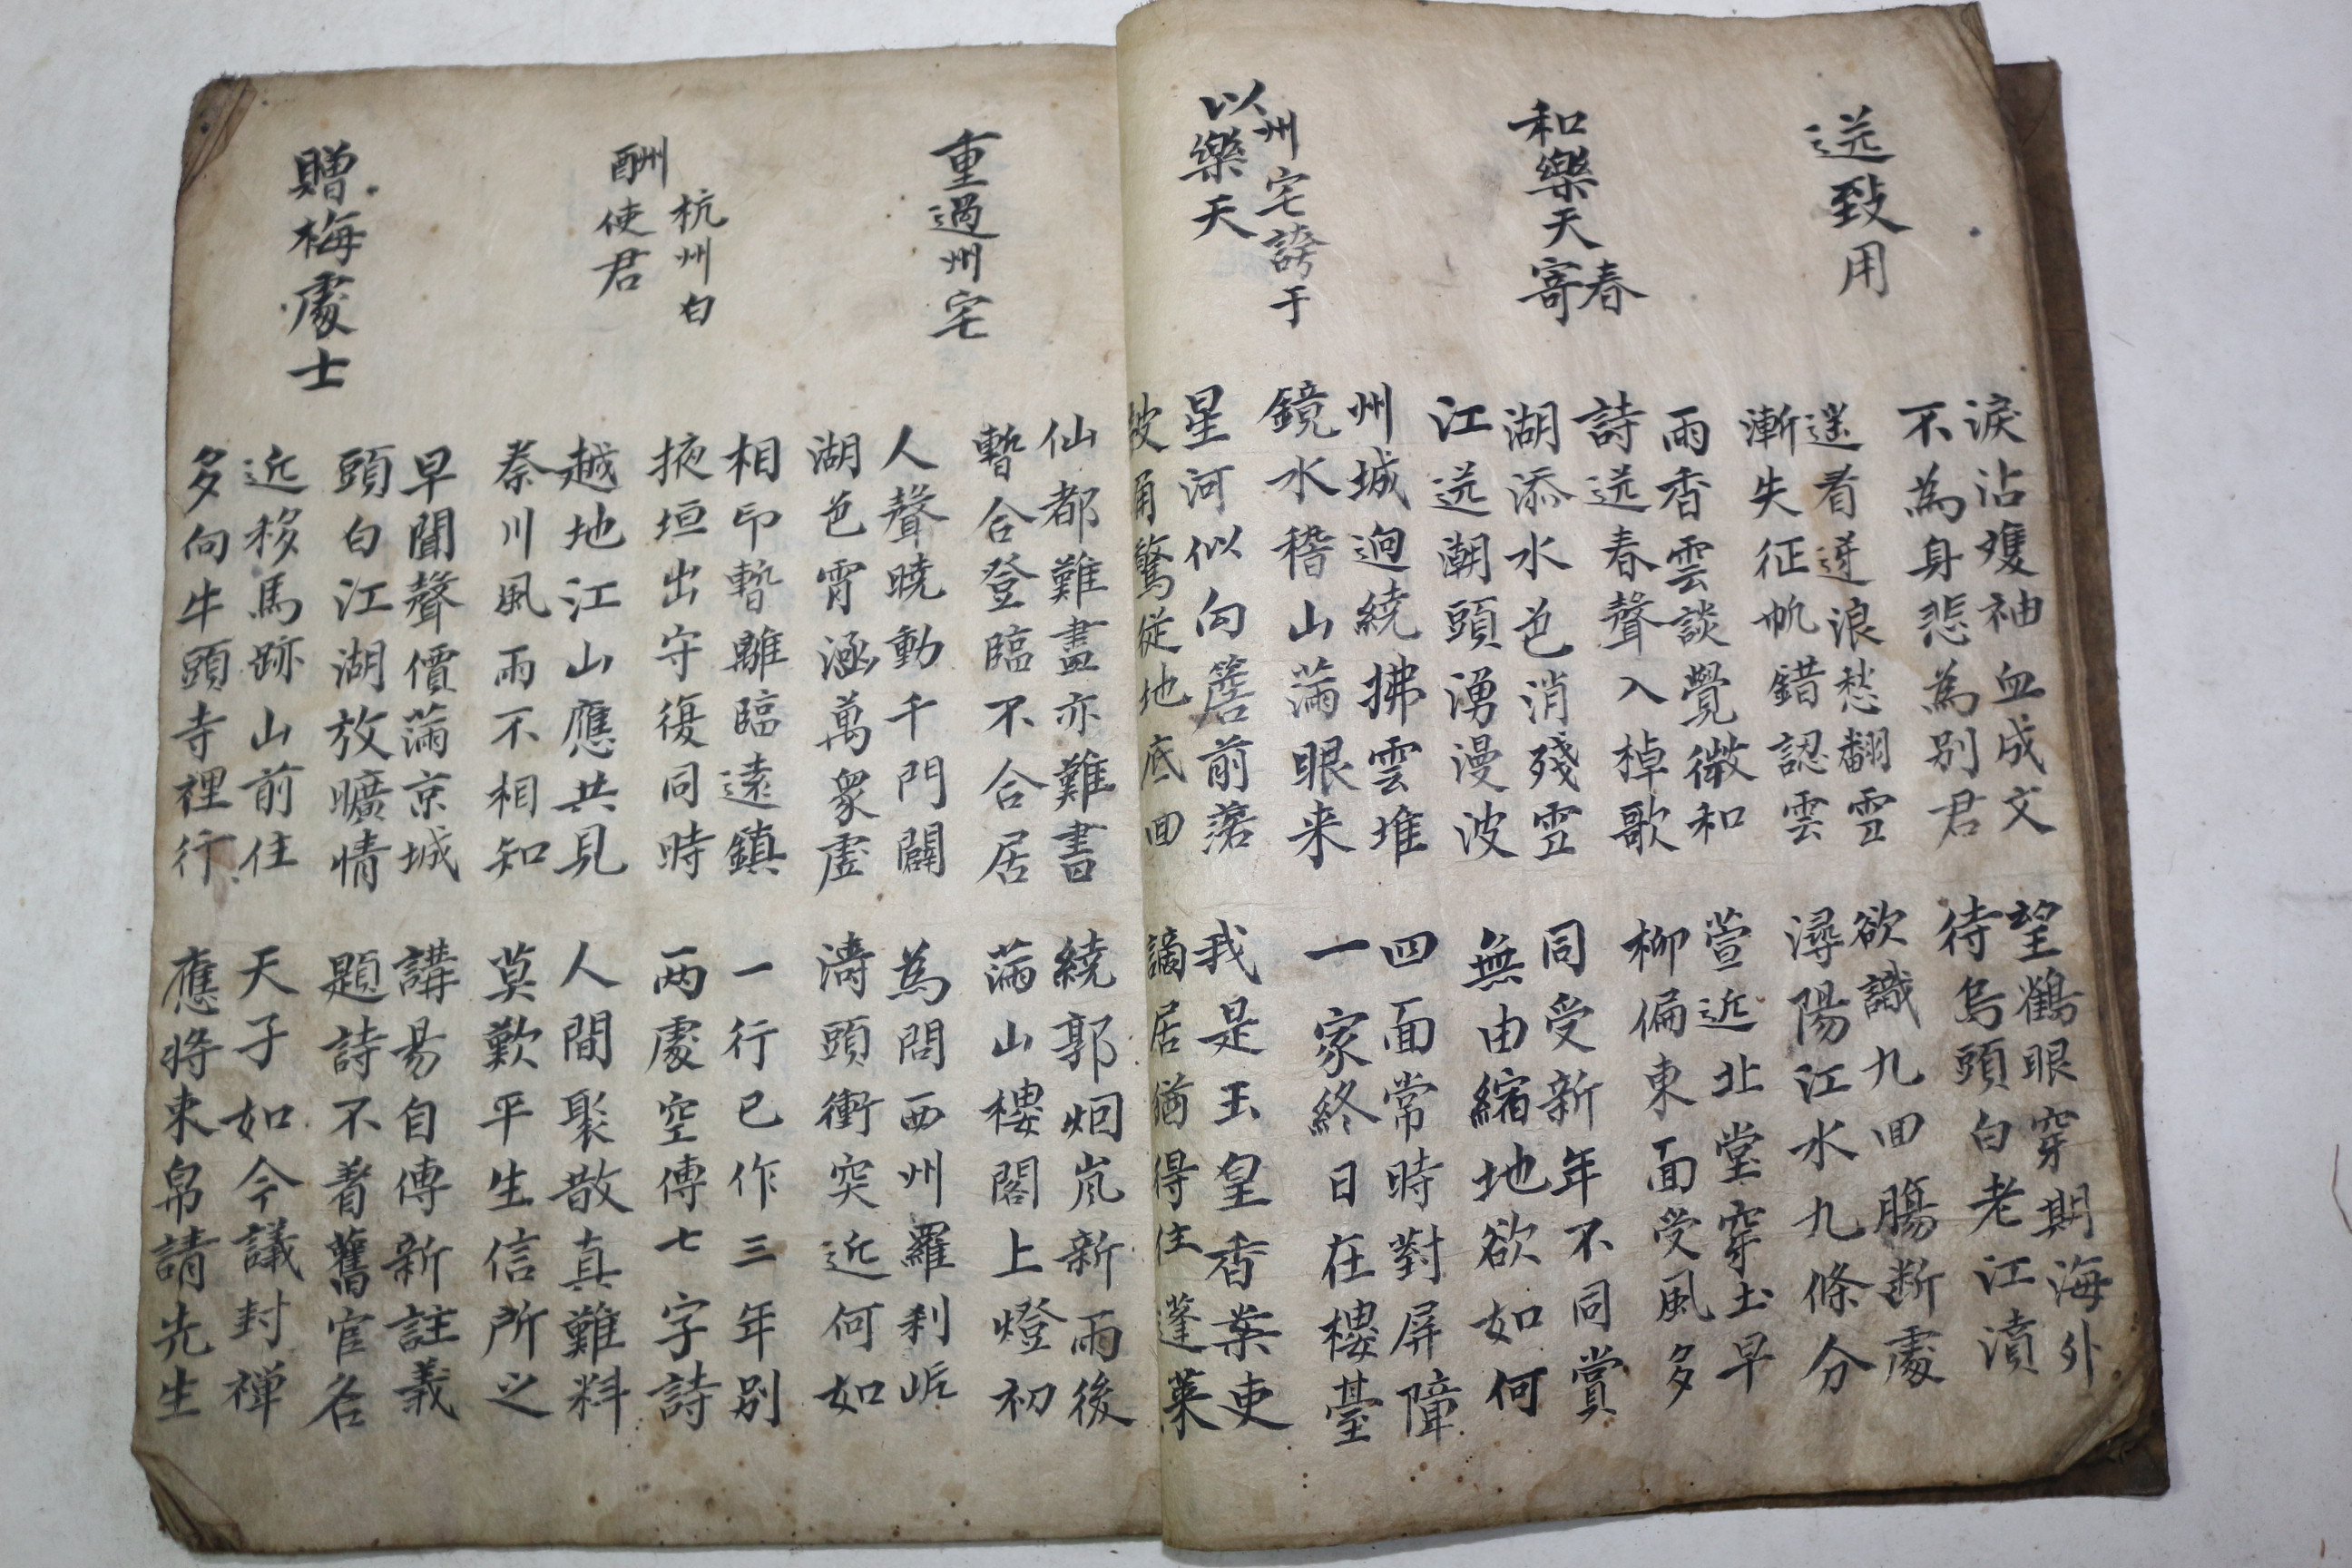 送致用
淚沾雙袖血成文
不為身悲為別君
望鶴眼穿期海外
待烏頭白老江濆
遥看逆浪愁翻雪
漸失征帆錯認雲
欲識九回腸断處
潯陽江水九條分
和樂天寄春
雨香雲談覺微和
詩送春聲入棹歌
萱近北堂穿土早
柳偏東面受風多
湖添水色消殘雪
江送潮頭湧漫波
同受新年不同賞
無由縮地欲如何
以州宅誇于樂天
州城迥繞拂雲堆
鏡水稽山滿眼来
四面常時對屏障
一家終日在樓臺
星河似向簷前落
皷角驚從地底回
我是玉皇香案吏
謫居猶得住蓬萊
重過州宅
仙都難畫亦難書
暫合登臨不合居
繞郭烟嵐新雨後
滿山樓閣上燈初
人聲曉動千門闢
湖色宵涵萬象虛
為問西州羅刹岸
濤頭衝突近何如
酬杭州白使君
相印暫離臨遠鎮
掖垣出守復同時
一行已作三年別
两處空傳七字詩
越地江山應共見
秦川風雨不相知
人間聚散真難料
莫歎平生信所之
贈梅處士
早聞聲價滿京城
頭白江湖放曠情
講易自傳新註義
題詩不着舊官名
近移馬跡山前住
多向牛頭寺裡行
天子如今議封禪
應將束帛請先生